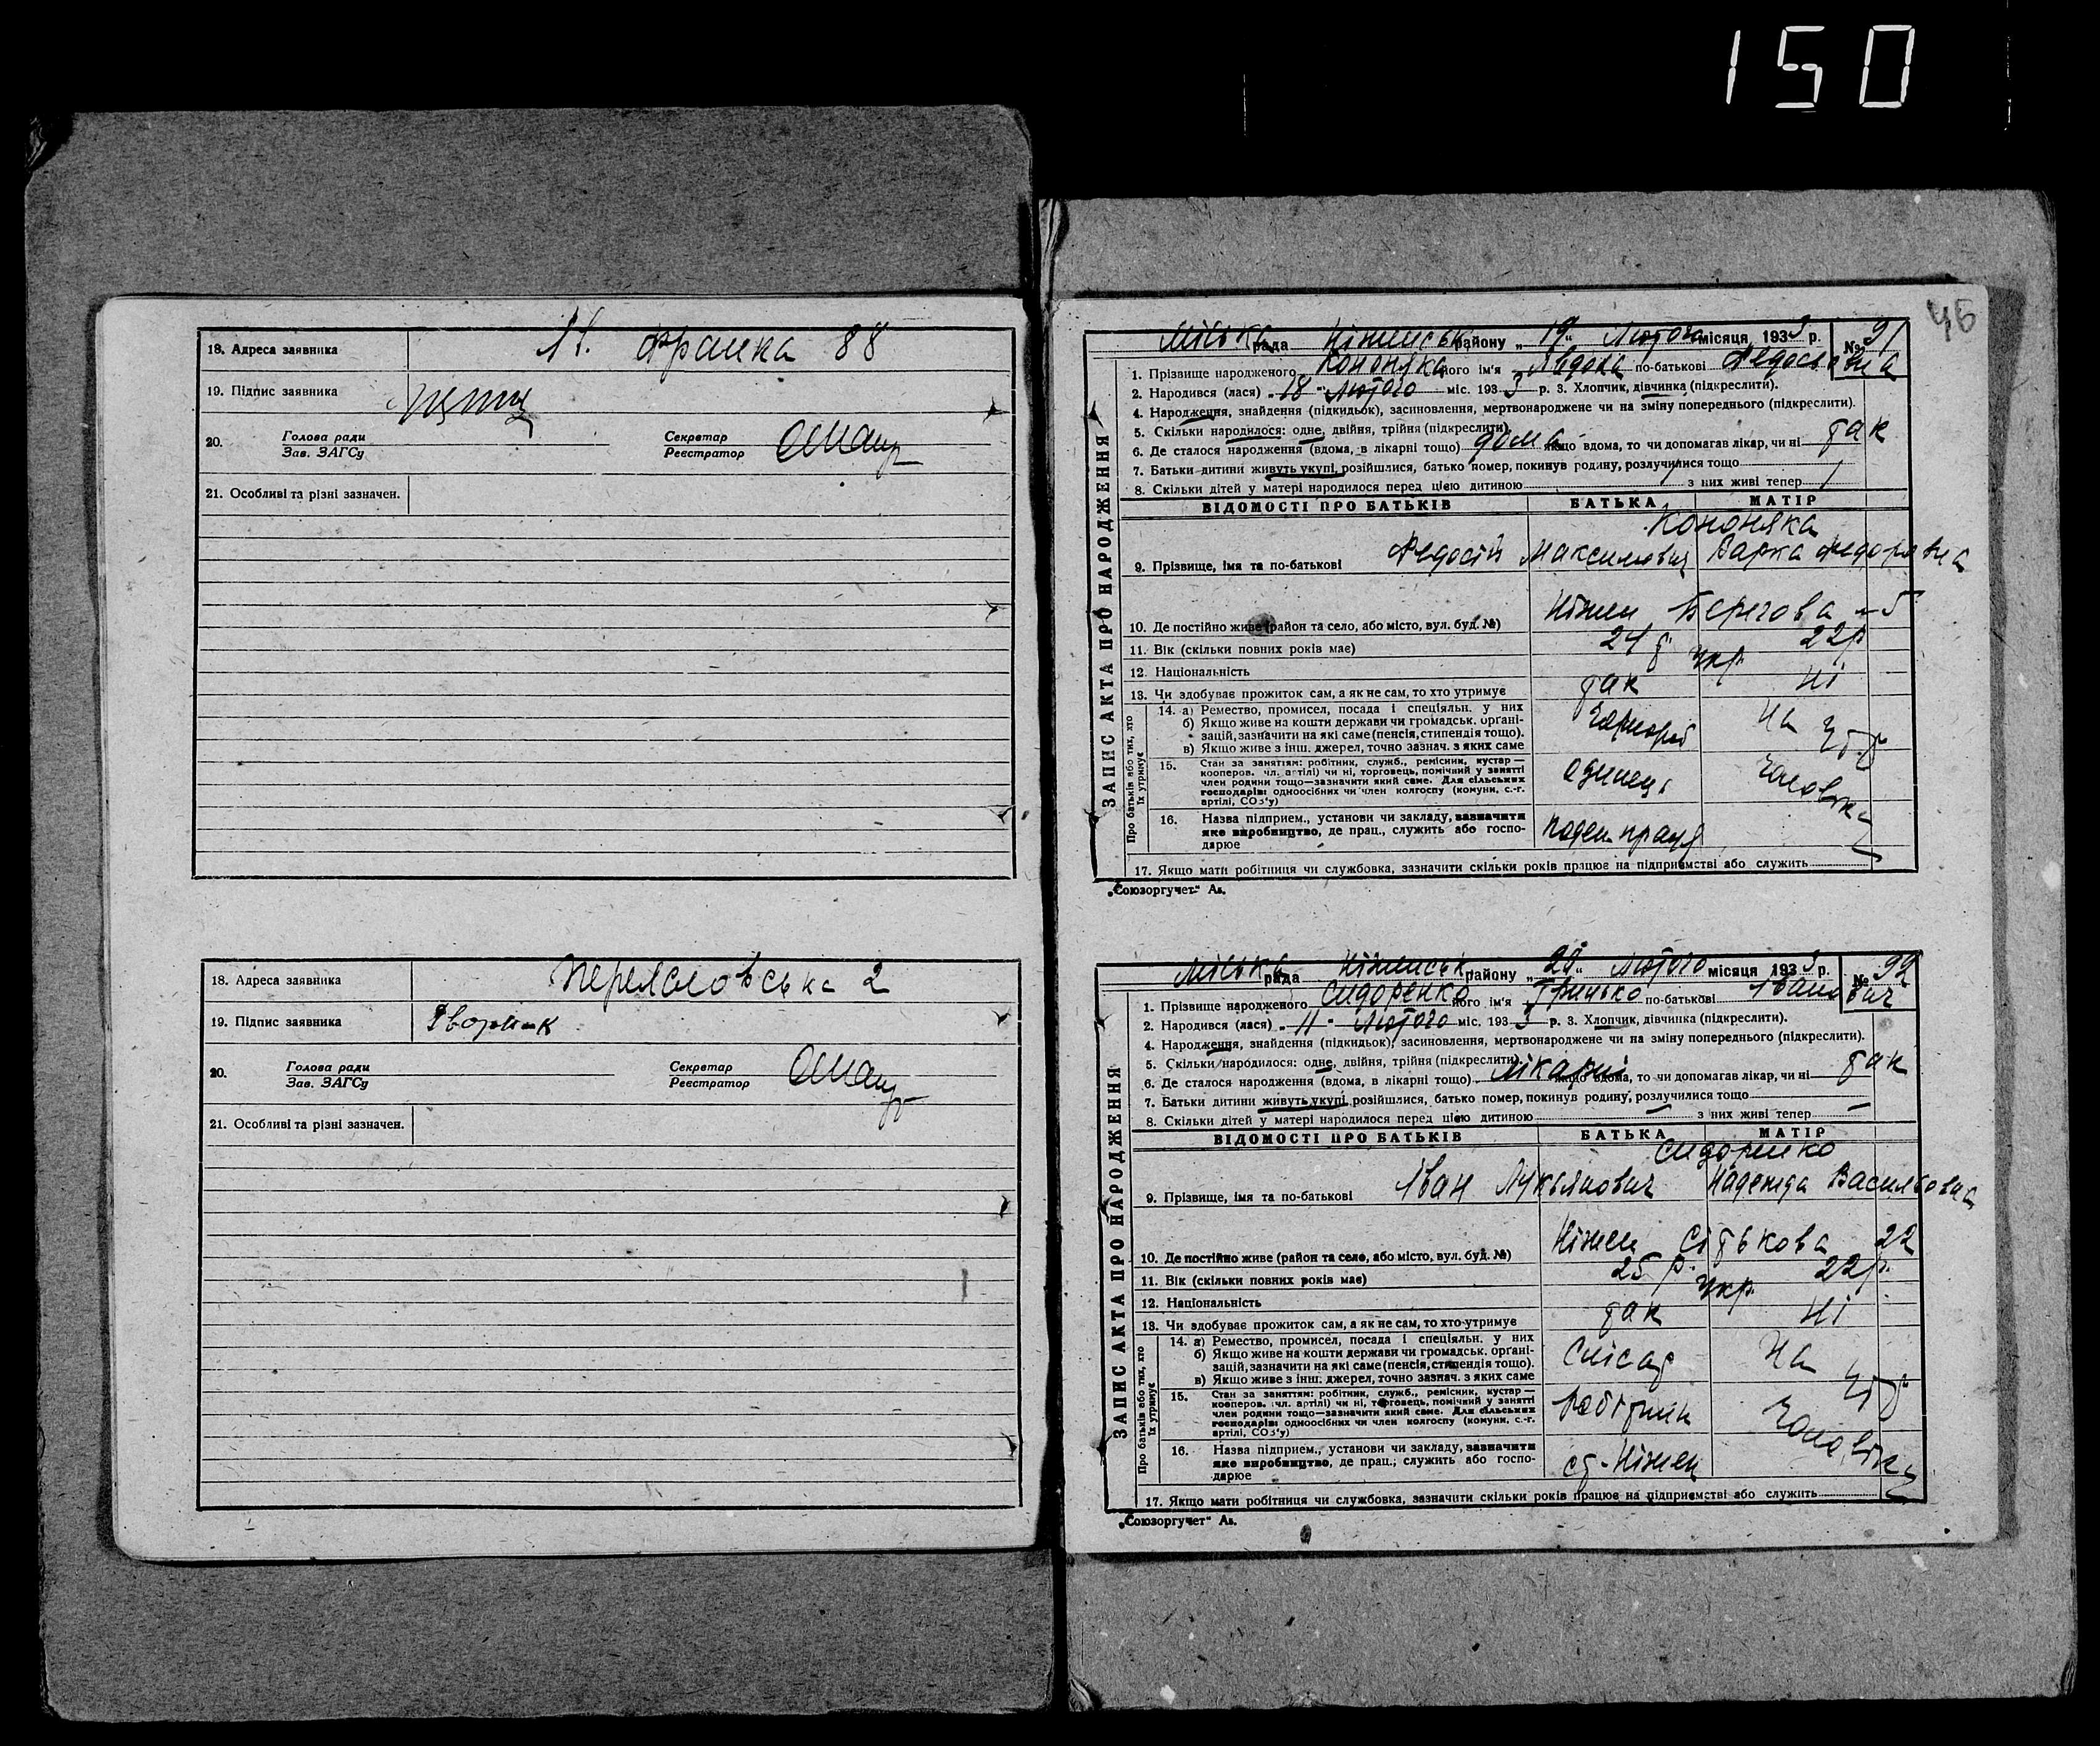 150
18. Адреса заявника Ів. Франка 88
19. Підпис заявника
20. Голова ради Зав. ЗАГСу Секретар Реєстратор
21. Особливі та різні зазначен.
18. Адреса заявника Переясловська 2
19. Підпис заявника
20. Голова ради Зав. ЗАГСу Секретар Реєстратор
21. Особливі та різні зазначен.
46
ЗАПИС АКТА ПРО НАРОДЖЕННЯ
Міська рада Ніженськ району „19“ Лютого місяця 1933 р. № 91
1. Прізвище народженого Кононяка його ім'я Явдоха по-батькові Федосіївна
2. Народився (лася) „18“ Лютого міс. 1933 р. 3. Хлопчик, дівчинка (підкреслити).
4. Народження, знайдення (підкидьок), засиновлення, мертвонароджене чи на зміну попереднього (підкреслити).
5. Скільки народилося: одне, двійня, трійня (підкреслити)
6. Де сталося народження (вдома, в лікарні тощо) дома якщо вдома, то чи допомагав лікар, чи ні так
7. Батьки дитини живуть укупі, розійшлися, батько помер, покинув родину, розлучилися тощо
8. Скільки дітей у матері народилося перед цією дитиною 1 з них живі тепер 1
ВІДОМОСТІ ПРО БАТЬКІВ БАТЬКА МАТІР
Кононяка
9. Прізвище, імя та по-батькові Федосій Максимович Варка Федоровна
10. Де постійно живе (район та село, або місто, вул. буд. №) Ніжен Берегова 5
11. Вік (скільки повних років має) 24 р. 22 р
12. Національність Укр.
13. Чи здобуває прожиток сам, а як не сам, то хто утримує так Ні
Про батьків або тих, хто їх утримує
14. а) Ремество, промисел, посада і спеціяльн. у них Чорнороб На утр
б) Якщо живе на кошти держави чи громадськ. органі-
зацій, зазначити на які саме (пенсія, стипендія тощо).
в) Якщо живе з інш. джерел, точно зазнач. з яких саме
15. Стан за заняттям: робітник, служб., ремісник, кустар— Чоловіка
кооперов. чл. артілі) чи ні, торговець, помічний у занятті
член родини тощо—зазначити який саме. Для сільських
господарів: одноосібних чи член колгоспу (комуни, с.-г.
артілі, СОЗ'у)
16. Назва підприєм., установи чи закладу, зазначити
яке виробництво, де прац., служить або госпо-
дарює поден працює
17. Якщо мати робітниця чи службовка, зазначити скільки років працює на підприємстві або служить
„Союзоргучет“ Ав.
ЗАПИС АКТА ПРО НАРОДЖЕННЯ
Міська рада Ніженськ району „20“ Лютого місяця 1933 р. № 92
1. Прізвище народженого Сидоренко його ім'я Грицько по-батькові Іванович
2. Народився (лася) „11“ Лютого міс. 1933 р. 3. Хлопчик, дівчинка (підкреслити).
4. Народження, знайдення (підкидьок), засиновлення, мертвонароджене чи на зміну попереднього (підкреслити).
5. Скільки народилося: одне, двійня, трійня (підкреслити)
6. Де сталося народження (вдома, в лікарні тощо) лікарні якщо вдома, то чи допомагав лікар, чи ні так
7. Батьки дитини живуть укупі, розійшлися, батько помер, покинув родину, розлучилися тощо
8. Скільки дітей у матері народилося перед цією дитиною — з них живі тепер —
ВІДОМОСТІ ПРО БАТЬКІВ БАТЬКА МАТІР
Сидоренко
9. Прізвище, імя та по-батькові Іван Лукьянович Надежда Васильовна
10. Де постійно живе (район та село, або місто, вул. буд. №) Ніжен Сітькова 22
11. Вік (скільки повних років має) 25 р. 22 р.
12. Національність Укр.
13. Чи здобуває прожиток сам, а як не сам, то хто утримує так Ні
Про батьків або тих, хто їх утримує
14. а) Ремество, промисел, посада і спеціяльн. у них Слісар На утр
б) Якщо живе на кошти держави чи громадськ. органі-
зацій, зазначити на які саме (пенсія, стипендія тощо).
в) Якщо живе з інш. джерел, точно зазнач. з яких саме
15. Стан за заняттям: робітник, служб., ремісник, кустар— Робітник Чоловіка
кооперов. чл. артілі) чи ні, торговець, помічний у занятті
член родини тощо—зазначити який саме. Для сільських
господарів: одноосібних чи член колгоспу (комуни, с.-г.
артілі, СОЗ'у)
16. Назва підприєм., установи чи закладу, зазначити
яке виробництво, де прац., служить або госпо-
дарює ст. Ніжен
17. Якщо мати робітниця чи службовка, зазначити скільки років працює на підприємстві або служить
„Союзоргучет“ Ав.